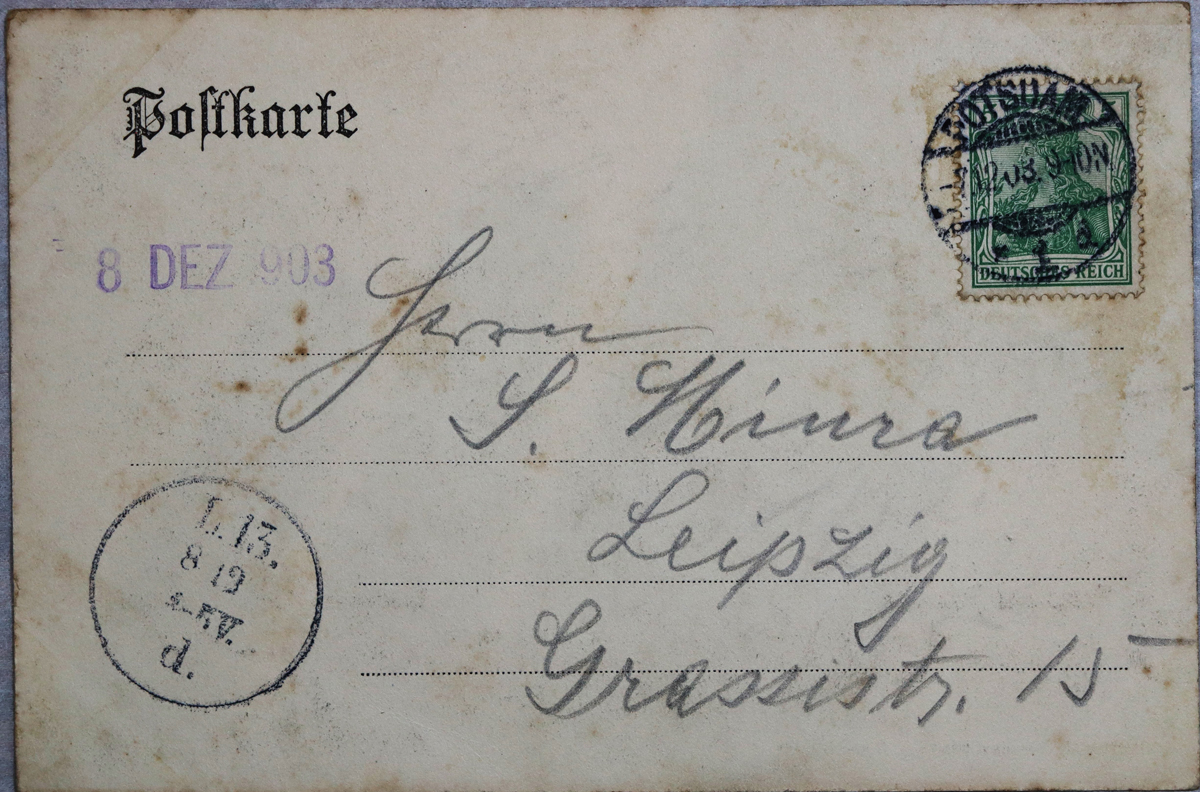 Postkarte
POTSDAM
12.03. 9-10N
1 a
DEUTSCHES REICH
8 DEZ 903
Herrn
S. Miura
Leipzig
Grassistr. 15
L.13.
8 12
V.
d.